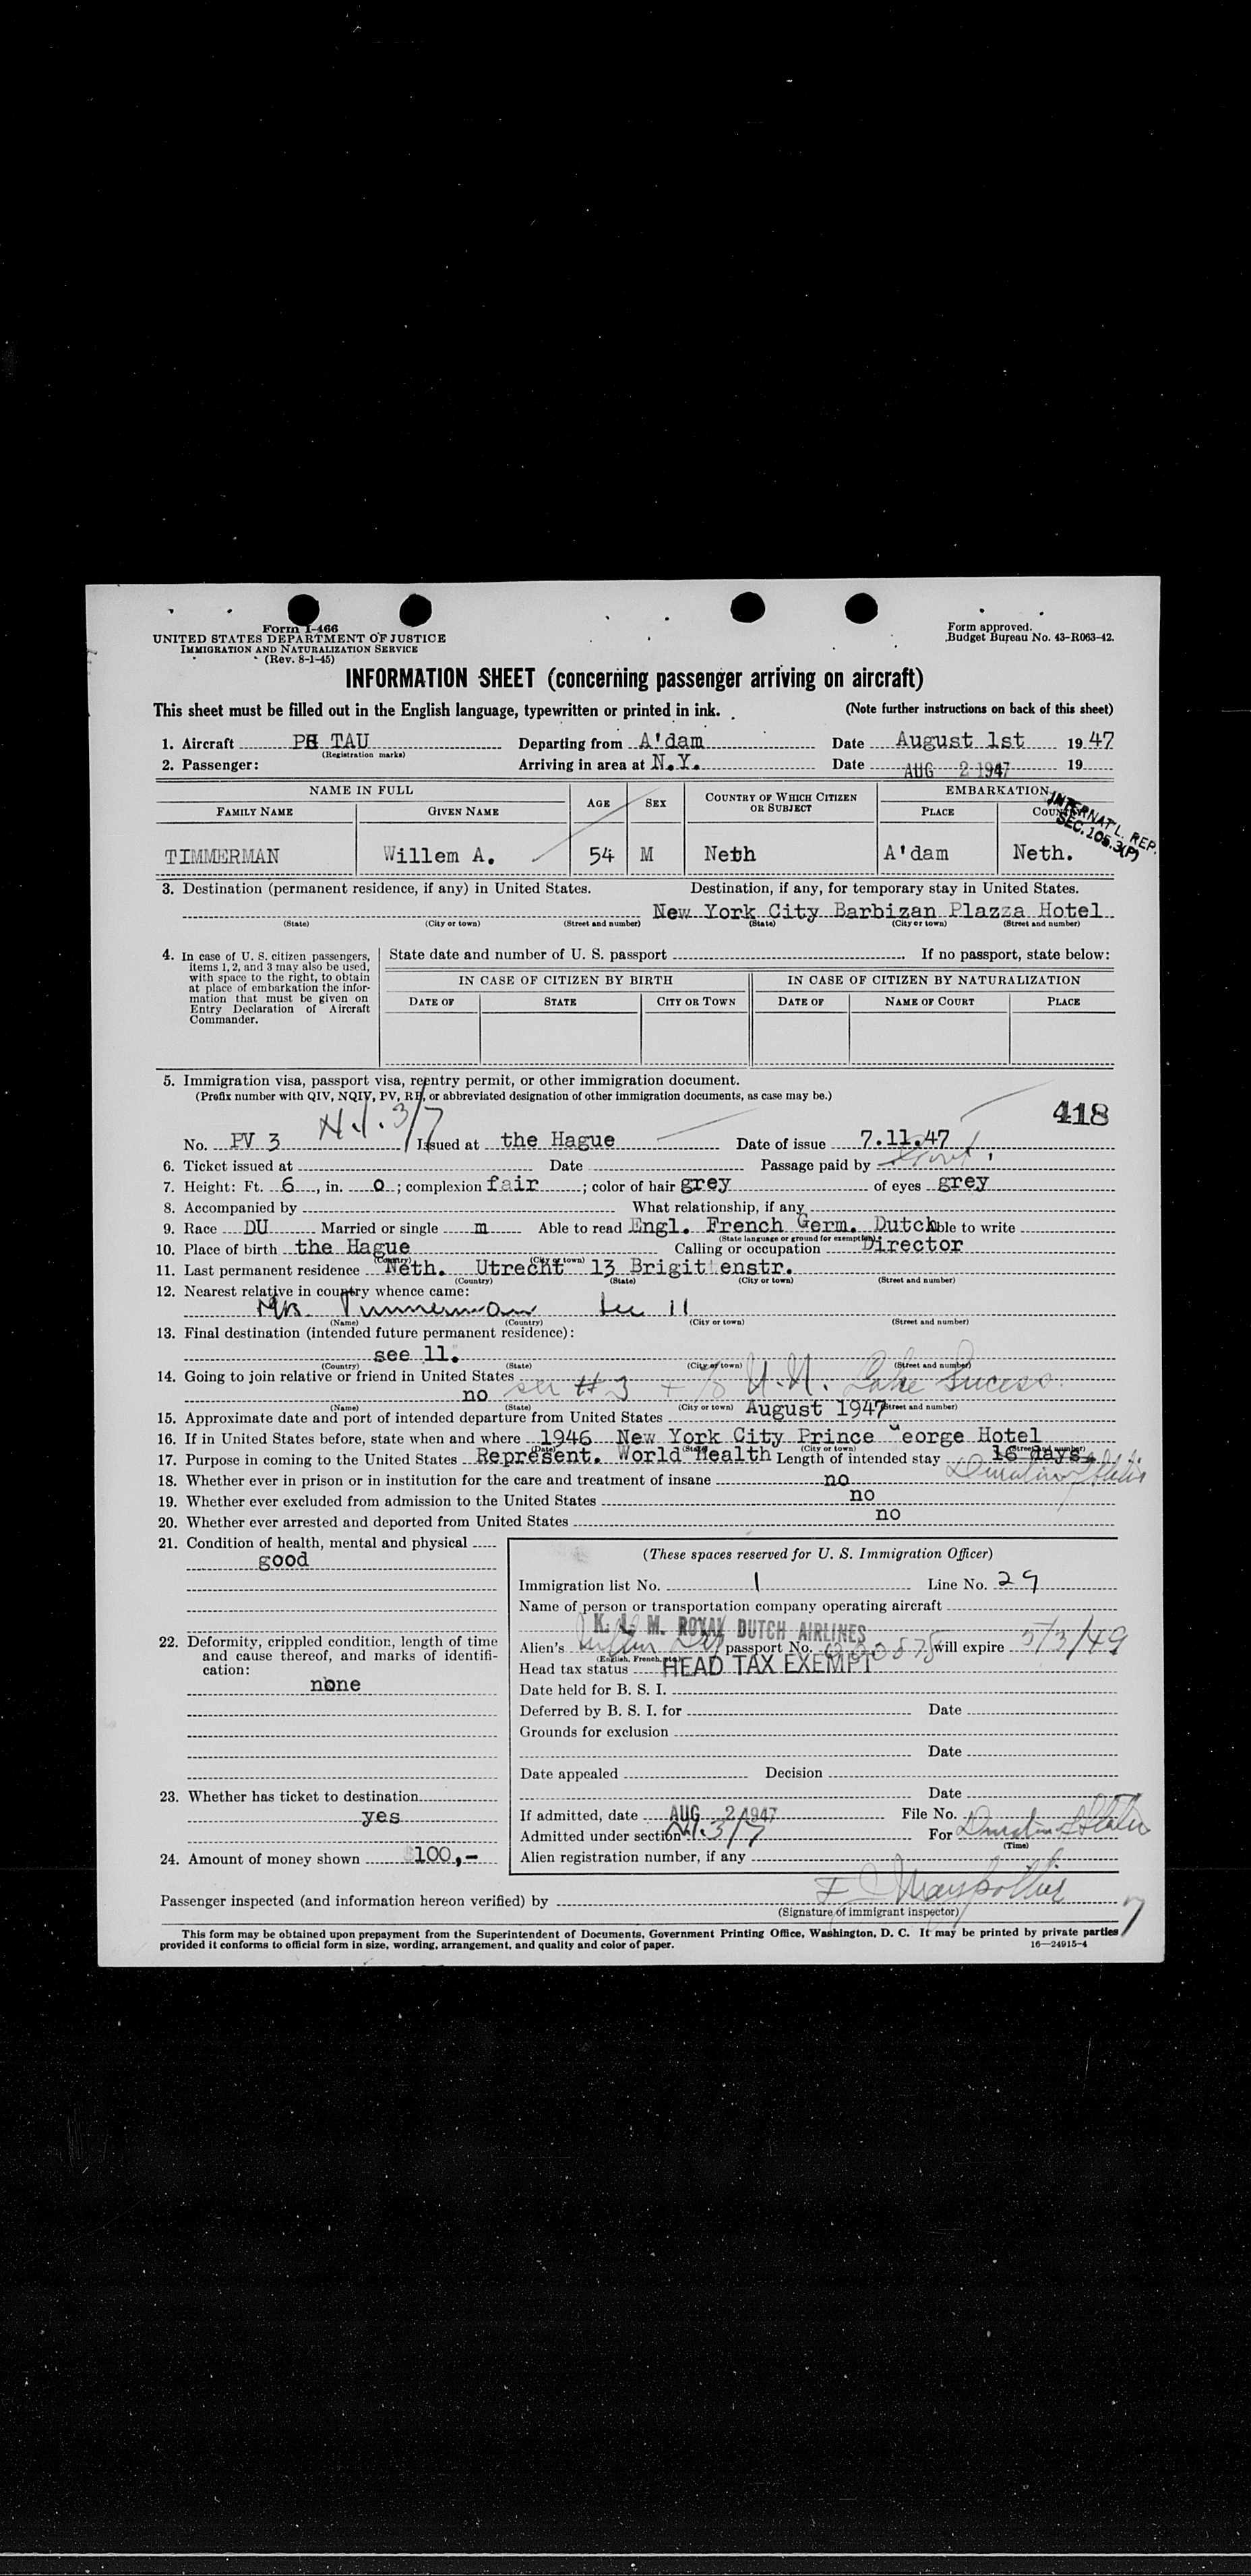 Form I-466
UNITED STATES DEPARTMENT OF JUSTICE
IMMIGRATION AND NATURALIZATION SERVICE
(Rev. 8-1-45)
Form approved.
Budget Bureau No. 43-R063-42.
INFORMATION SHEET (concerning passenger arriving on aircraft)
This sheet must be filled out in the English language, typewritten or printed in ink. (Note further instructions on back of this sheet)
1. Aircraft PH TAU Departing from A'dam Date August 1st 1947
(Registration marks)
2. Passenger: Arriving in area at N.Y. Date AUG 2 1947 19
NAME IN FULL AGE SEX COUNTRY OF WHICH CITIZEN OR SUBJECT EMBARKATION
FAMILY NAME GIVEN NAME PLACE COUNTRY
INTERNAT'L. REP.
SEC. 105.3(P)
TIMMERMAN Willem A. 54 M Neth A'dam Neth.
3. Destination (permanent residence, if any) in United States. Destination, if any, for temporary stay in United States.
New York City Barbizan Plazza Hotel
(State) (City or town) (Street and number) (State) (City or town) (Street and number)
4. In case of U. S. citizen passengers, items 1, 2, and 3 may also be used, with space to the right, to obtain at place of embarkation the information that must be given on Entry Declaration of Aircraft Commander.
State date and number of U. S. passport If no passport, state below:
IN CASE OF CITIZEN BY BIRTH IN CASE OF CITIZEN BY NATURALIZATION
DATE OF STATE CITY OR TOWN DATE OF NAME OF COURT PLACE
5. Immigration visa, passport visa, reentry permit, or other immigration document.
(Prefix number with QIV, NQIV, PV, RP, or abbreviated designation of other immigration documents, as case may be.)
418
No. PV 3 N.I. 3/7 Issued at the Hague Date of issue 7.11.47
6. Ticket issued at Date Passage paid by
7. Height: Ft. 6, in. 0; complexion fair; color of hair grey of eyes grey
8. Accompanied by What relationship, if any
9. Race DU Married or single m Able to read Engl. French Germ. Dutch able to write
(State language or ground for exemption)
10. Place of birth the Hague Calling or occupation Director
(Country) (City or town)
11. Last permanent residence Neth. Utrecht 13 Brigittenstr.
(Country) (State) (City or town) (Street and number)
12. Nearest relative in country whence came:
Mrs. Timmerman see 11
(Name) (Country) (City or town) (Street and number)
13. Final destination (intended future permanent residence):
see 11.
(Country) (State) (City or town) (Street and number)
14. Going to join relative or friend in United States
no see #3 + c/o U.N. Lake Sucess
(Name) (State) (City or town) (Street and number)
15. Approximate date and port of intended departure from United States August 1947
16. If in United States before, state when and where 1946 New York City Prince George Hotel
(Date) (State) (City or town) (Street and number)
17. Purpose in coming to the United States Represent. World Health Length of intended stay 16 days. Duration Status
18. Whether ever in prison or in institution for the care and treatment of insane no
19. Whether ever excluded from admission to the United States no
20. Whether ever arrested and deported from United States no
21. Condition of health, mental and physical
good
22. Deformity, crippled condition, length of time and cause thereof, and marks of identification:
none
23. Whether has ticket to destination
yes
24. Amount of money shown $100,-
(These spaces reserved for U. S. Immigration Officer)
Immigration list No. 1 Line No. 29
Name of person or transportation company operating aircraft
K. L. M. ROYAL DUTCH AIRLINES
Alien's passport No. will expire 5/3/49
(English, French, etc.)
Head tax status HEAD TAX EXEMPT
Date held for B. S. I.
Deferred by B. S. I. for Date
Grounds for exclusion
Date
Date appealed Decision
Date
If admitted, date AUG 2 1947 File No.
Admitted under section N.I. 3/7 For Duration Status
(Time)
Alien registration number, if any
Passenger inspected (and information hereon verified) by
(Signature of immigrant inspector)
This form may be obtained upon prepayment from the Superintendent of Documents, Government Printing Office, Washington, D. C. It may be printed by private parties
provided it conforms to official form in size, wording, arrangement, and quality and color of paper. 16—24915-4